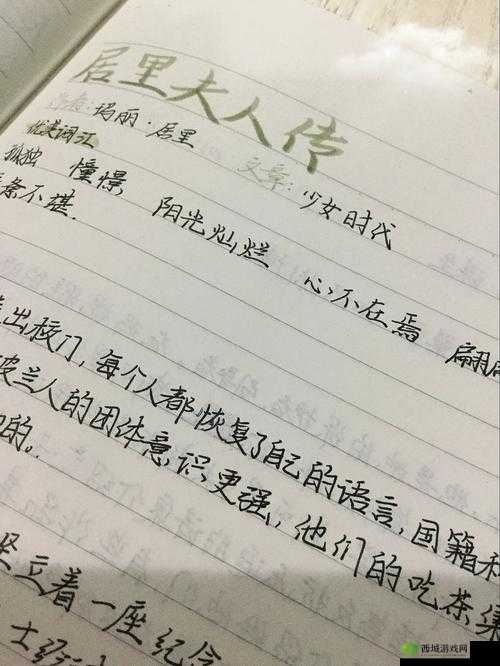 居里夫人传
作者：玛丽·居里
文章：少女时代
优美词汇
孤独 憧憬，阳光灿烂 心不在焉 翩
条不堪.
出校门，每个人都恢复了自己的语言，国籍和
波兰人的团体意识更强，他们的吃茶集
的。
立着一座纪念
西城游戏网